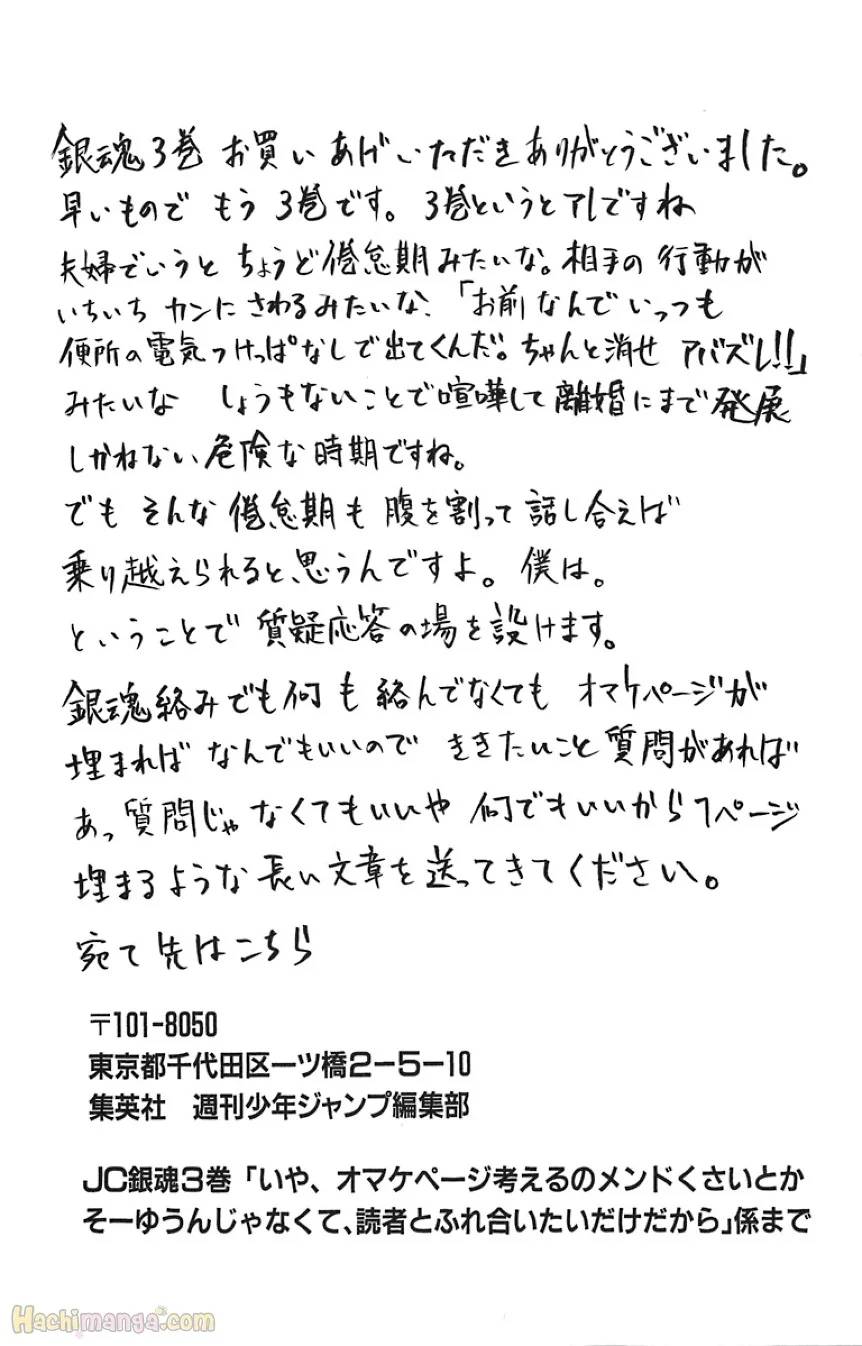 銀魂3巻 お買いあげいただきありがとうございました。
早いもので もう 3巻です。3巻というとアレですね
夫婦でいうと ちょうど倦怠期みたいな。相手の行動が
いちいち カンにさわるみたいな、「お前なんでいっつも
便所の電気つけっぱなしで出てくんだ。ちゃんと消せ アバズレ!!」
みたいな しょうもないことで喧嘩して離婚にまで発展
しかねない危険な時期ですね。
でも そんな 倦怠期も 腹を割って話し合えば
乗り越えられると、思うんですよ。僕は。
ということで 質疑応答の場を設けます。
銀魂絡みでも何も絡んでなくても オマケページが
埋まれば なんでもいいので ききたいこと質問があれば
あっ質問じゃなくてもいいや 何でもいいから1ページ
埋まるような長い文章を送ってきてください。
宛て先はこちら
〒101-8050
東京都千代田区一ツ橋2-5-10
集英社 週刊少年ジャンプ編集部
JC銀魂3巻「いや、オマケページ考えるのメンドくさいとか
そーゆうんじゃなくて、読者とふれ合いたいだけだから」係まで
Hachimanga.com